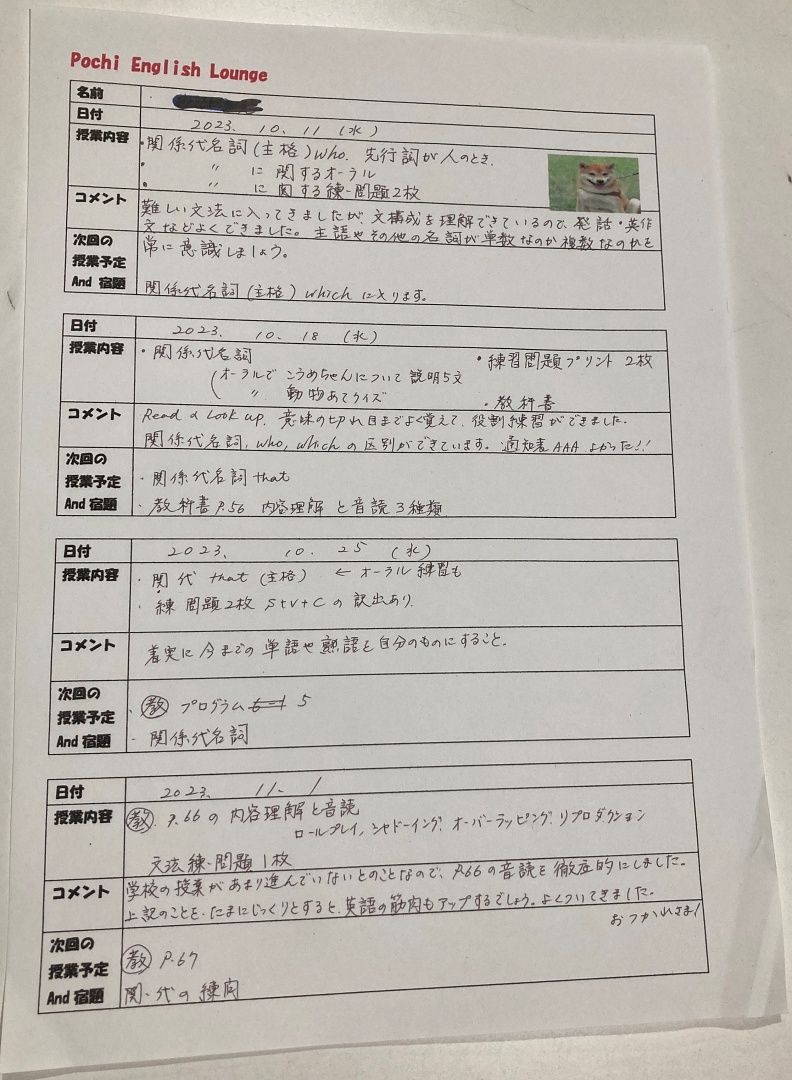 Pochi English Lounge
名前
日付 2023. 10. 11 (水)
授業内容 ・関係代名詞(主格)who. 先行詞が人のとき.
・ 〃 に関するオーラル
・ 〃 に関する練・問題2枚
コメント 難しい文法に入ってきましたが、文構成を理解できているので、発話・英作
文などよくできました。主語やその他の名詞が単数なのか複数なのかを
常に意識しましょう。
次回の
授業予定
And 宿題 関係代名詞(主格) which に入ります。
日付 2023. 10. 18 (水)
授業内容 ・関係代名詞 ・練習問題プリント 2枚
(オーラルで こうめちゃんについて 説明5文
〃 動物あてクイズ ・教科書
コメント Read & Look up. 意味の切れ目までよく覚えて、役割練習ができました.
関係代名詞, who, which の区別ができています。通知表 AAA よかった!!
次回の
授業予定 ・関係代名詞 that
And 宿題 ・教科書 P.56 内容理解 と音読 3種類
日付 2023. 10. 25 (水)
授業内容 ・関代 that (主格) ← オーラル練習も
・練 問題2枚 S+V+C の訳出あり.
コメント 着実に今までの単語や熟語を自分のものにすること.
次回の
授業予定 ・教 プログラム 5
And 宿題 ・関係代名詞
日付 2023. 11. 1
授業内容 教. P.66 の内容理解と音読
ロールプレイ, シャドーイング, オーバーラッピング. リプロダクション
文法練・問題1枚
コメント 学校の授業があまり進んでいないとのことなので、P.66の音読を徹底的にしました。
上記のことを・たまにじっくりとすると、英語の筋肉もアップするでしょう。よくついてきました.
おつかれさま!
次回の
授業予定 教 P.67
And 宿題 関・代の練問